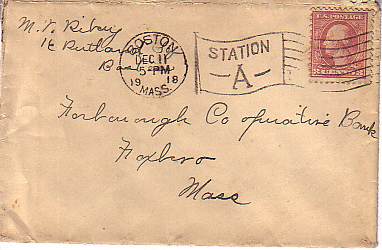 M. V. Riley
16 Rutland
Boston
BOSTON
DEC 11
5-PM
19 18
MASS.
STATION
-A-
U.S. POSTAGE
Foxborough Co operative Bank
Foxboro
Mass